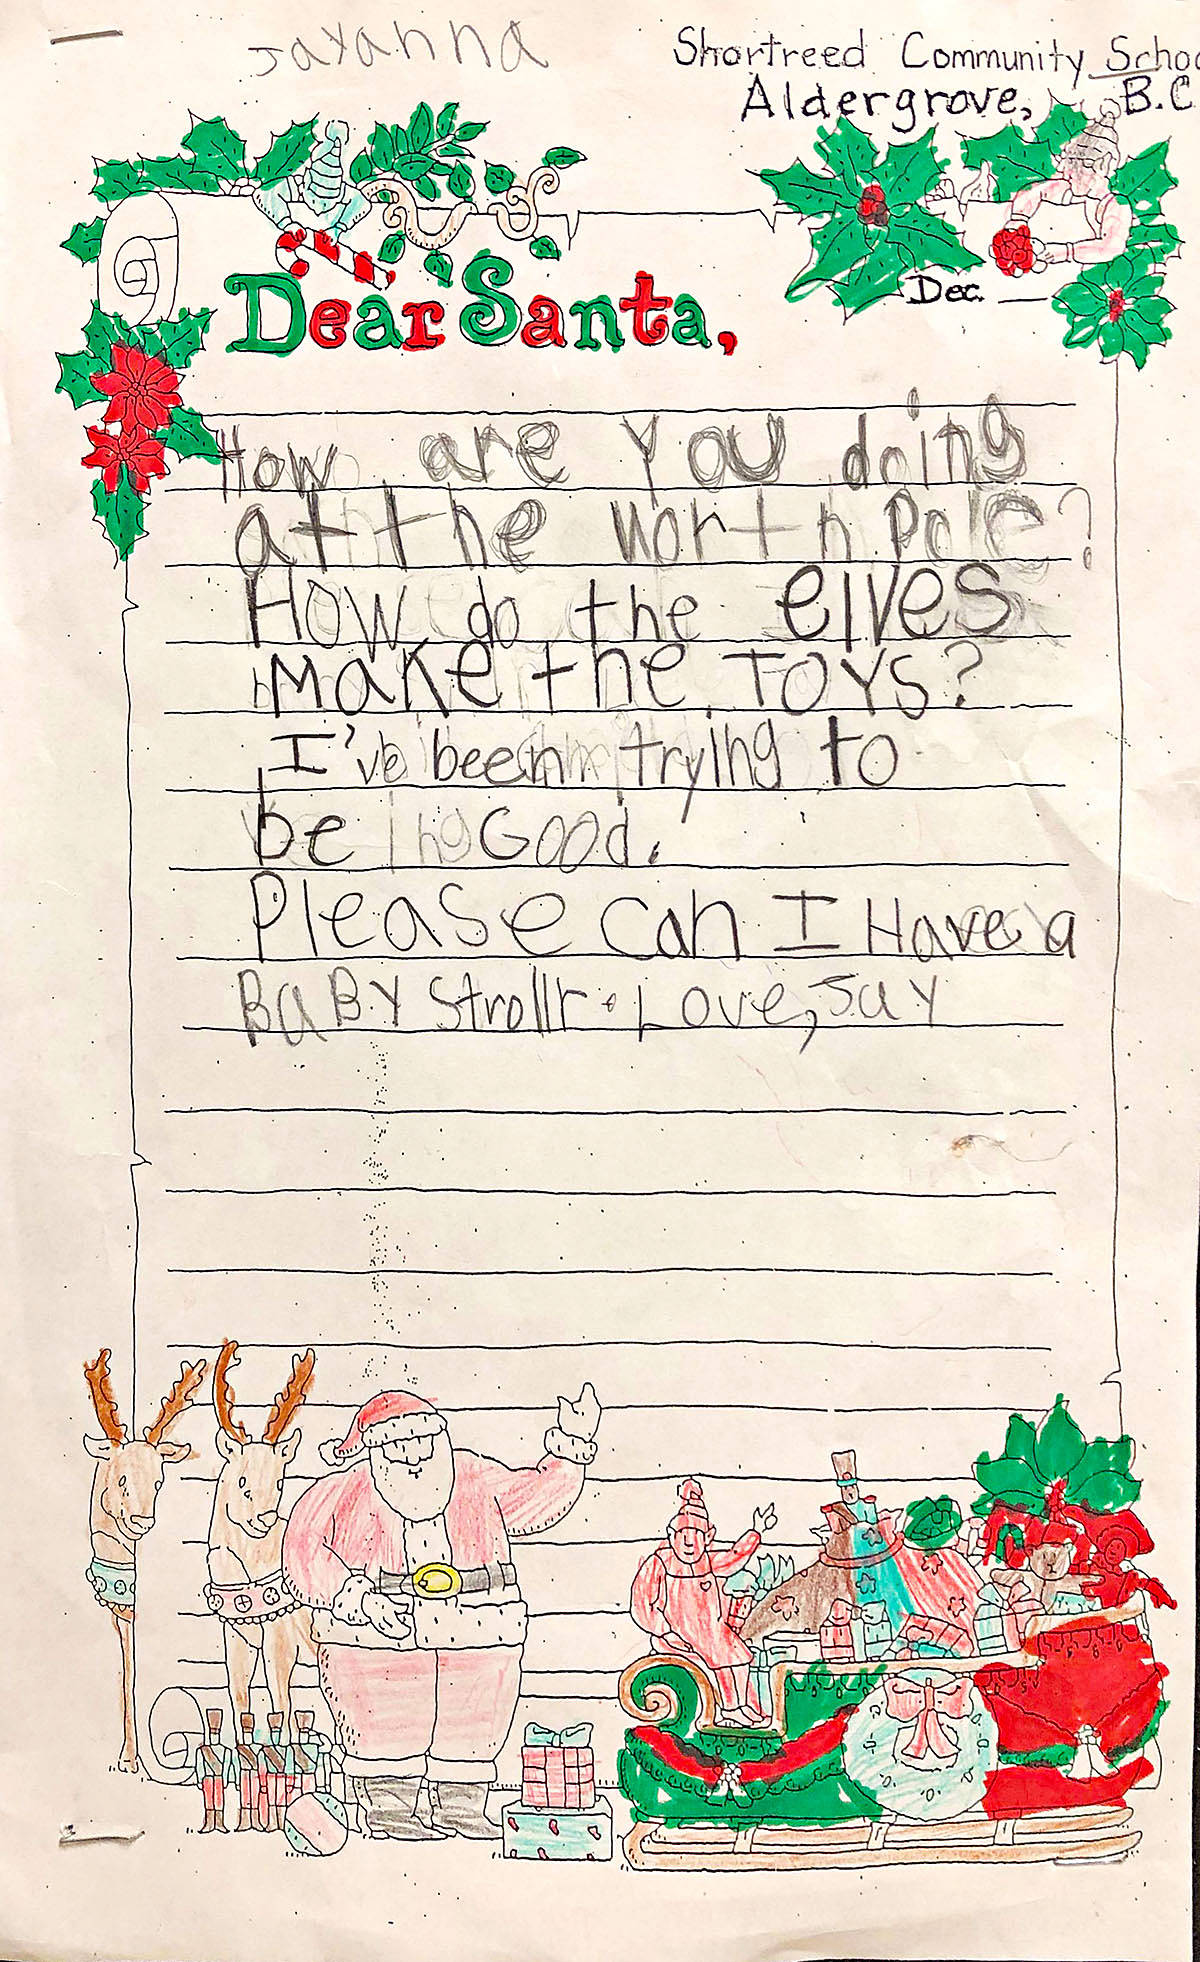 Jayanna
Shortreed Community Schoo
Aldergrove, B.C
Dec.
Dear Santa,
How are you doing
at the north Pole?
How do the elves
make the TOYS?
I've been trying to
be Good.
Please can I Have a
BaBy Strollr. Love, Jay